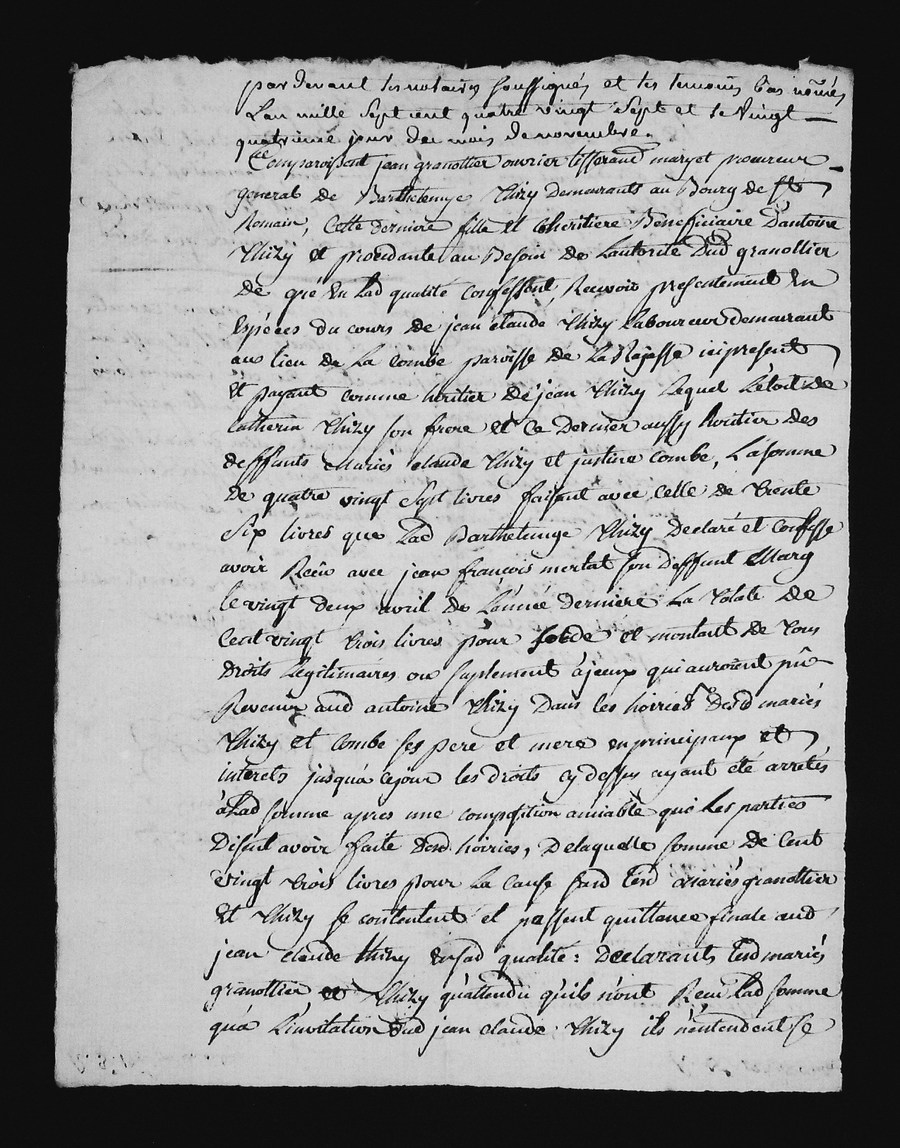 pardevant les notaires soussignés et les temoins bas només
L'an mille sept cent quatre vingt sept et le vingt
quatrieme jour du mois de novembre.
Comparoissent jean granottier ouvrier tisserand mary et procureur
general de Barthelemye Thizy demeurants au Bourg de st
Romain, Cette derniere fille et Coheritiere Beneficiaire D'antoine
Thizy et procedante au Besoin de Lautorité Dud granottier
De gré En Lad qualité Confessent, Recevoir presentement En
Espèces du cours de jean claude Thizy Laboureur demeurant
au lieu de La Combe paroisse de La Rajasse ici present
Et payant comme heritier De jean Thizy Lequel L'étoit de
Catherin Thizy son frere et Ce Dernier aussy heritier des
deffunts Mariés claude Thizy et justine Combe, La somme
De quatre vingt sept livres faisant avec celle de trente
Six livres que Lad Barthelemye Thizy Declare et Confesse
avoir Recû avec jean francois mertat son deffunt Mary
le vingt deux avril de L'année derniere La totale de
Cent vingt trois livres pour solde et montant de tous
Droits Legitimaires ou suplement d'jceux qui auroient pû
Revenir aud antoine Thizy Dans les hoiries Desd mariés
Thizy et Combe ses pere et mere en principaux et
interets jusqu'a cejour les droits cy dessus ayant été arretés
à Lad somme apres une composition amiable que Les parties
Disent avoir faite Desd hoiries, De laquelle somme de Cent
vingt trois livres pour La Cause sard Lesd Mariés granottier
Et Thizy se contentent et passent quittance finale aud
jean claude Thizy en sad qualité: Declarants Lesd mariés
granottier et Thizy qu'attendu qu'ils n'ont Recû Lad somme
qu'a L'invitation Dud jean claude Thizy ils n'entendent se